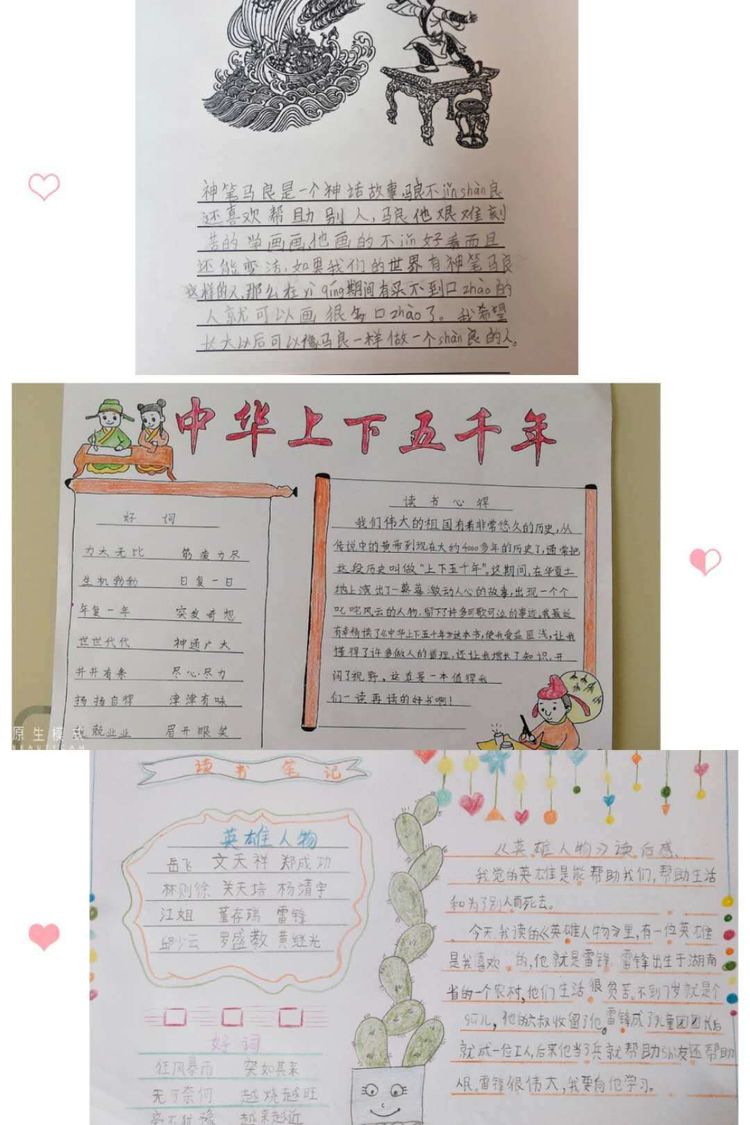 神笔马良是一个神话故事,马良不jǐn shàn良
还喜欢帮助别人,马良他艰难刻
苦的学画画,他画的不jǐn好看而且
还能变法,如果我们的世界有神笔马良
这样的人,那么在yì qíng期间有买不到口zhào的
人就可以画很多口zhào了。我希望
长大以后可以像马良一样做一个shàn良的人。
中华上下五千年
好词
力大无比 筋疲力尽
生机勃勃 日复一日
年复一年 突发奇想
世世代代 神通广大
井井有条 尽心尽力
扬扬自得 津津有味
兢业业 眉开眼笑
读书心得
我们伟大的祖国有着非常悠久的历史,从
传说中的黄帝到现在大约4000多年的历史了,通常把
这段历史叫做“上下五千年”。这期间,在华夏土
地上演出了一幕幕激动人心的故事,出现一个个
叱咤风云的人物,留下了许多可歌可泣的事迹。我最近
有幸精读了《中华上下五千年》这本书,使我受益匪浅,让我
懂得了许多做人的道理,还让我增长了知识,开
阔了视野。这真是一本值得我
们一读再读的好书啊!
原生模式
BEAUTYCAM
读书笔记
英雄人物
岳飞 文天祥 郑成功
林则徐 关天培 杨靖宇
江姐 董存瑞 雷锋
邱少云 罗盛教 黄继光
好词
狂风暴雨 突如其来
无可奈何 越烧越旺
毫不犹豫 越来越近
《英雄人物》读后感
我觉的英雄是能帮助我们,帮助生活
和为了别人而死去。
今天我读的《英雄人物》里,有一位英雄
是我喜欢的,他就是雷锋。雷锋出生于湖南
省的一个农村,他们生活很贫苦。不到7岁就是个
孤儿,他的叔收留了他,雷锋成了儿童团团长后
就成一位工人,后来他当了兵就帮助shi友还帮助
人民,雷锋很伟大,我要向他学习。